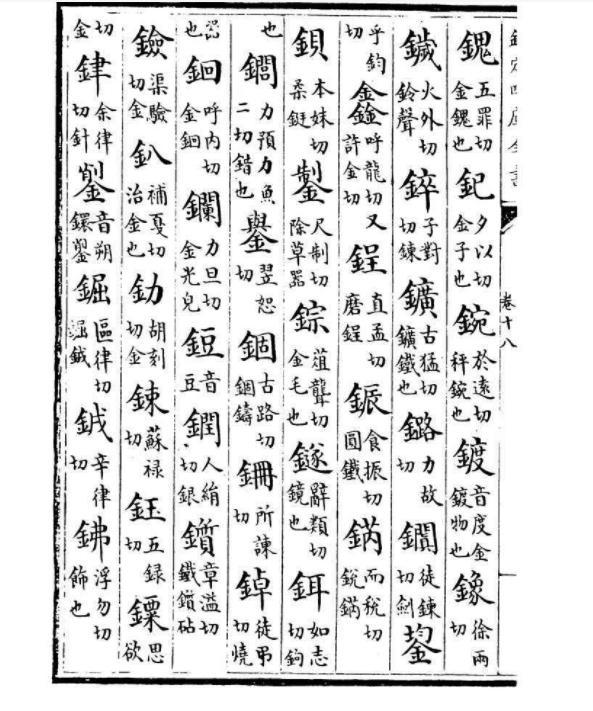 卷十八
五罪切金也釲夕以切金子也鋺於遠切秤鋺也鍍音度金鍍物也鐌徐兩切
鐬火外切鈴聲錊子對切鍊鑛古猛切鑛鐵也鏴力故切徒鍊切鋆
乎鈞切呼龍切又許金切鋥直孟切磨鋥鋠食振切圓鐵而稅切銳
鋇本妹切柔鋌尺制切除草器錝葅聾切金毛也鐩辭類切鏡也鉺如志切鉤
也力預力魚二切錯也翌恕切錮古路切錮鑄所諫切鋽徒弔切燒
器也呼內切金鑭力旦切金光皃鋀音豆人絹切銀鑕章溢切鐵鑕砧
鐱渠驗切金釟補戛切治金也釛胡刻切金鋉蘇祿切鈺五錄切思欲
切金銉余律切針音朔區律切辛律切鉘浮勿切飾也